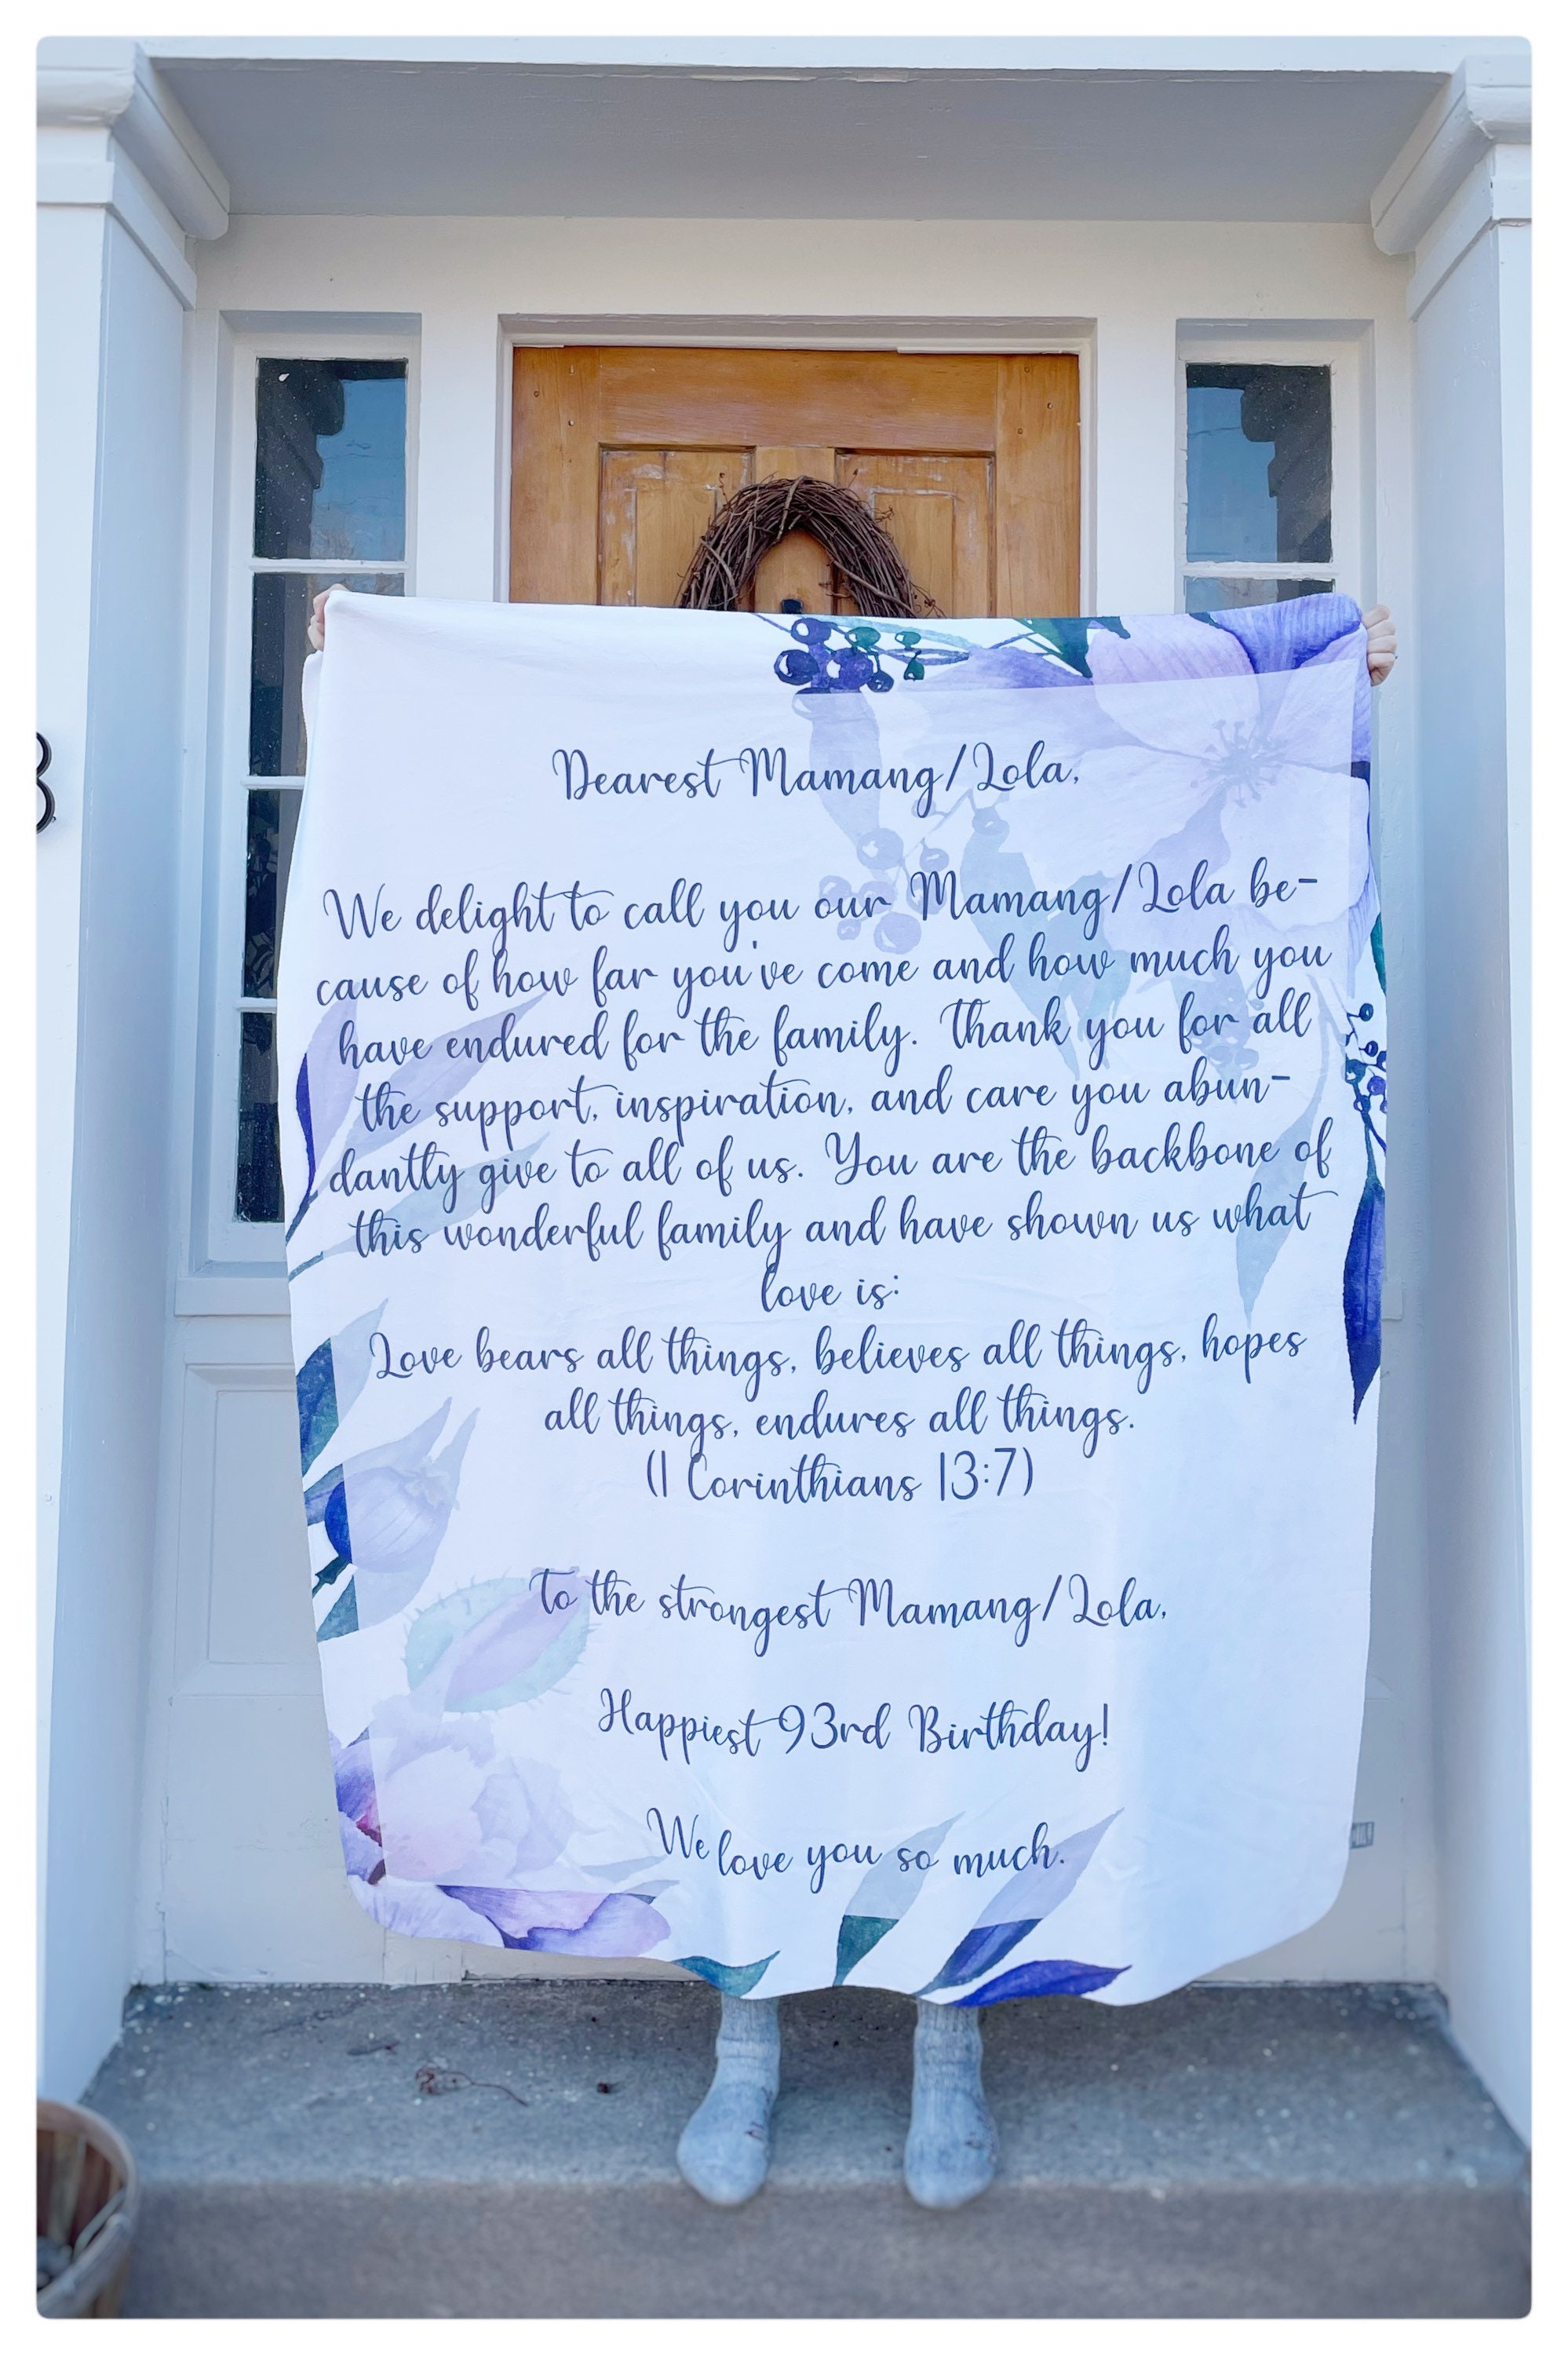 Dearest Mamang/Lola,
We delight to call you our Mamang/Lola be-
cause of how far you've come and how much you
have endured for the family. Thank you for all
the support, inspiration, and care you abun-
dantly give to all of us. You are the backbone of
this wonderful family and have shown us what
love is:
Love bears all things, believes all things, hopes
all things, endures all things.
(1 Corinthians 13:7)
To the strongest Mamang/Lola,
Happiest 93rd Birthday!
We love you so much.